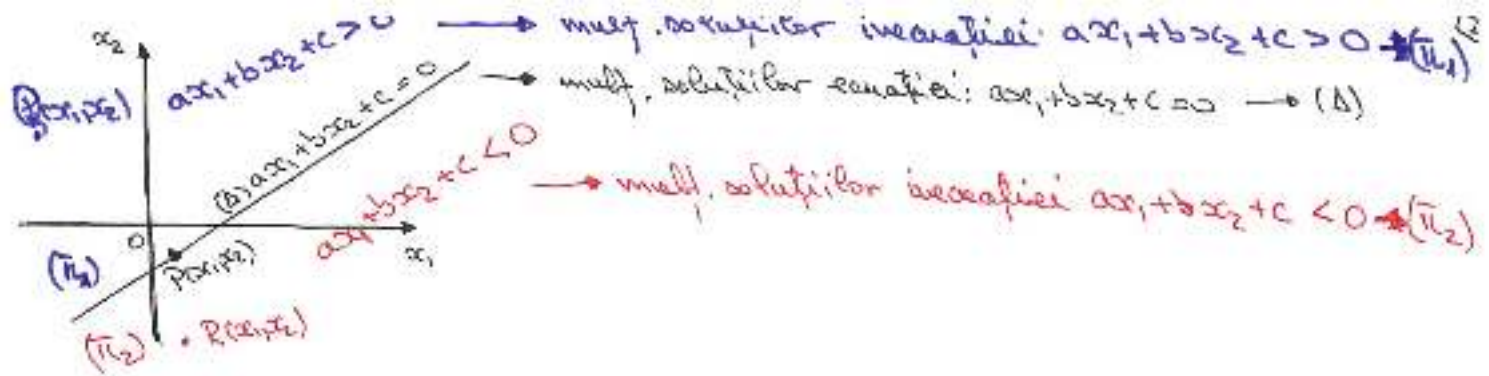 x₂
ax₁+bx₂+c>0 → mulț. soluțiilor inecuației: ax₁+bx₂+c>0 → (π₁)
Q(x₁,x₂)
(Δ) ax₁+bx₂+c=0 → mulț. soluțiilor ecuației: ax₁+bx₂+c=0 → (Δ)
ax₁+bx₂+c<0 → mulț. soluțiilor inecuației ax₁+bx₂+c<0 → (π₂)
0
x₁
(π₁)
P(x₁,x₂)
(π₂) · R(x₁,x₂)